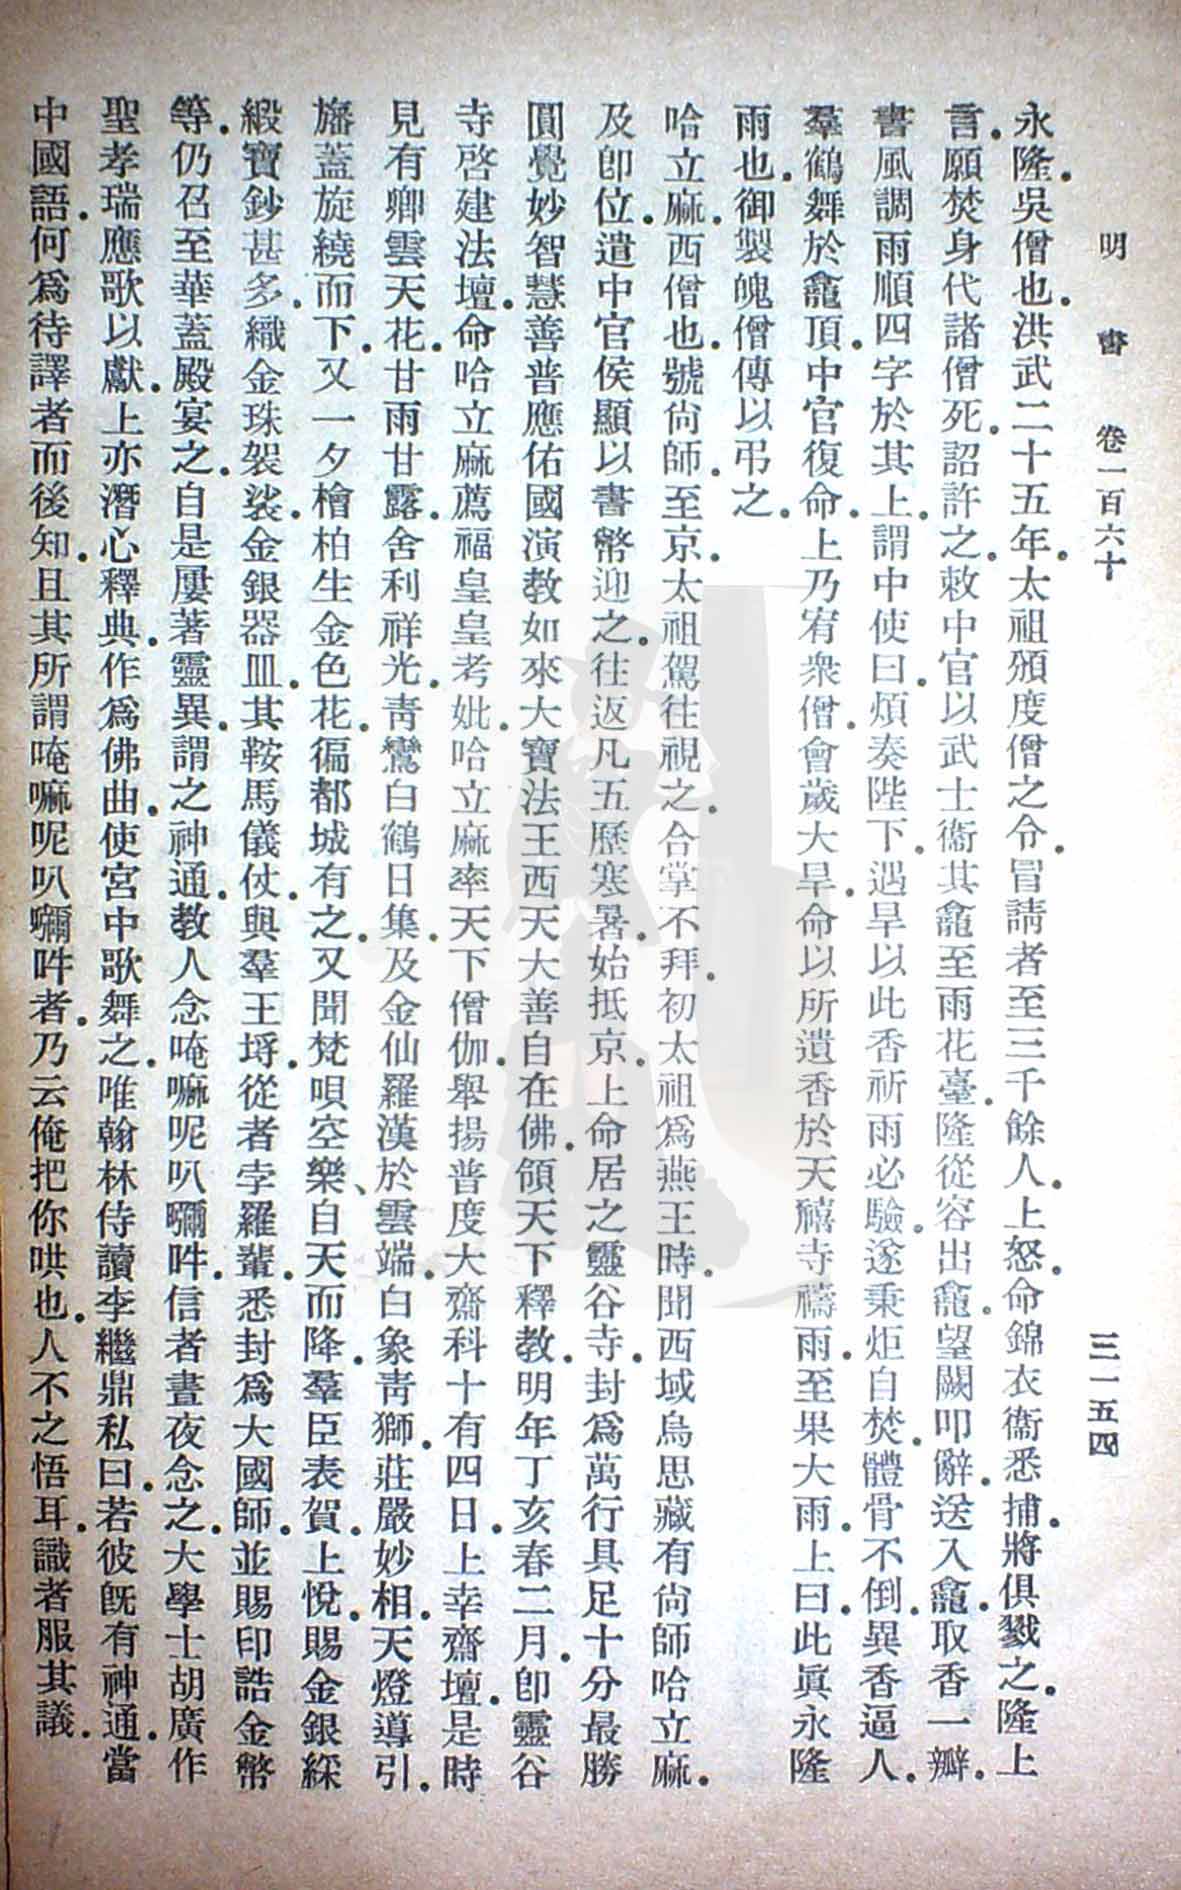 明書 卷一百六十 三一五四
永隆.吳僧也.洪武二十五年.太祖頒度僧之令.冒請者至三千餘人.上怒.命錦衣衞悉捕.將俱戮之.隆上
言.願焚身代諸僧死.詔許之.敕中官以武士衞其龕至雨花臺.隆從容出龕.望闕叩辭.送入龕.取香一瓣.
書風調雨順四字於其上.謂中使曰.煩奏陛下.遇旱以此香祈雨必驗.遂秉炬自焚.體骨不倒.異香逼人.
羣鶴舞於龕頂.中官復命.上乃宥衆僧.會歲大旱.命以所遺香於天禧寺禱雨.至果大雨.上曰.此眞永隆
雨也.御製魄僧傳以弔之.
哈立麻.西僧也.號尙師.至京.太祖駕往視之.合掌不拜.初太祖爲燕王時.聞西域烏思藏有尙師哈立麻.
及卽位.遣中官侯顯以書幣迎之.往返凡五歷寒暑.始抵京.上命居之靈谷寺.封爲萬行具足十分最勝
圓覺妙智慧善普應佑國演教如來大寶法王西天大善自在佛.領天下釋教.明年丁亥春二月.卽靈谷
寺啓建法壇.命哈立麻薦福皇皇考妣.哈立麻率天下僧伽.舉揚普度大齋科十有四日.上幸齋壇.是時
見有卿雲天花.甘雨甘露.舍利祥光.靑鸞白鶴日集.及金仙羅漢於雲端.白象靑獅.莊嚴妙相.天燈導引.
旛蓋旋繞而下.又一夕檜柏生金色花.徧都城有之.又聞梵唄空樂、自天而降.羣臣表賀.上悅.賜金銀綵
緞寶鈔甚多.織金珠袈裟.金銀器皿.其鞍馬儀仗.與羣王埓.從者孛羅輩.悉封爲大國師.並賜印誥金幣
等.仍召至華蓋殿宴之.自是屢著靈異.謂之神通.教人念唵嘛呢叭𡄣吽.信者晝夜念之.大學士胡廣作
聖孝瑞應歌以獻.上亦潛心釋典.作爲佛曲.使宮中歌舞之.唯翰林侍讀李繼鼎私曰.若彼旣有神通.當
中國語.何爲待譯者而後知.且其所謂唵嘛呢叭𡄣吽者.乃云俺把你哄也.人不之悟耳.識者服其議.